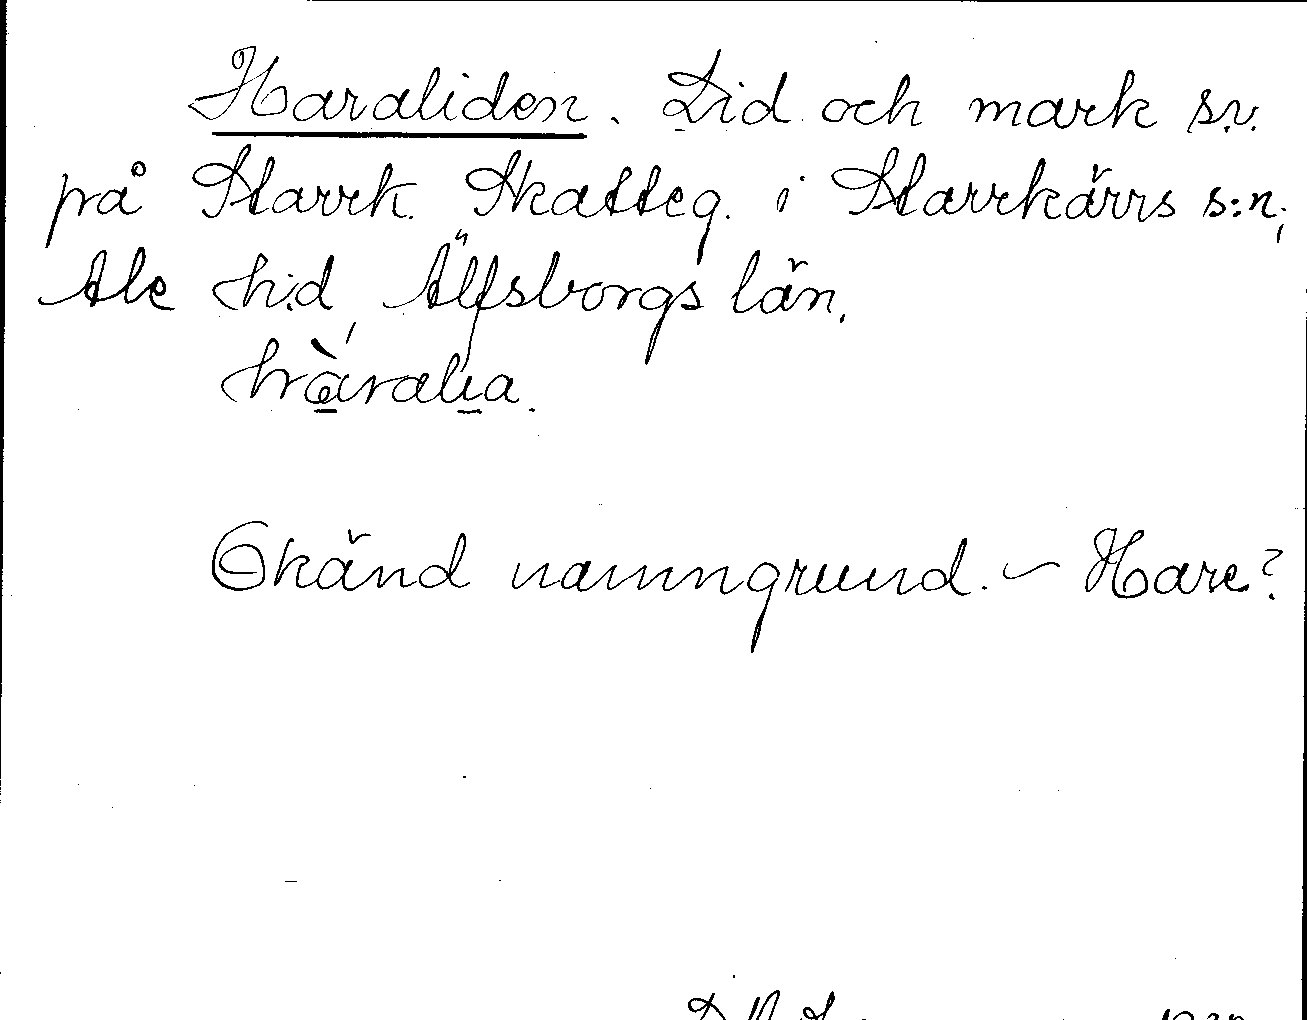 Haraliden. Lid och mark s.v.
på Starrk. Skatteg. i Starrkärrs s:n,
Ale h:d, Älfsborgs län.
hàralia.
Okänd namngrund. – Hare?